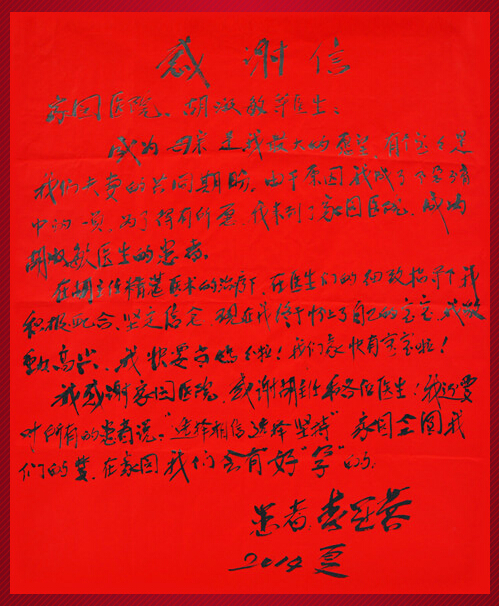 感谢信
家圆医院、胡淑敏等医生:
成为母亲是我最大的愿望,有个宝宝是
我们夫妻的共同期盼。由于原因我成了不孕症
中的一员,为了得有所愿,我来到了家圆医院,成为
胡淑敏医生的患者。
在胡主任精湛医术的治疗下,在医生们的细致指导下我
积极配合、坚定信念,现在我终于怀上了自己的宝宝,我激
动高兴,我快要当妈妈啦!我们家快有宝宝啦!
我感谢家圆医院,感谢胡主任和各位医生!我还要
对所有的患者说:“选择相信选择坚持”家圆会圆我
们的梦,在家圆我们会有好“孕”的。
患者
2014 夏